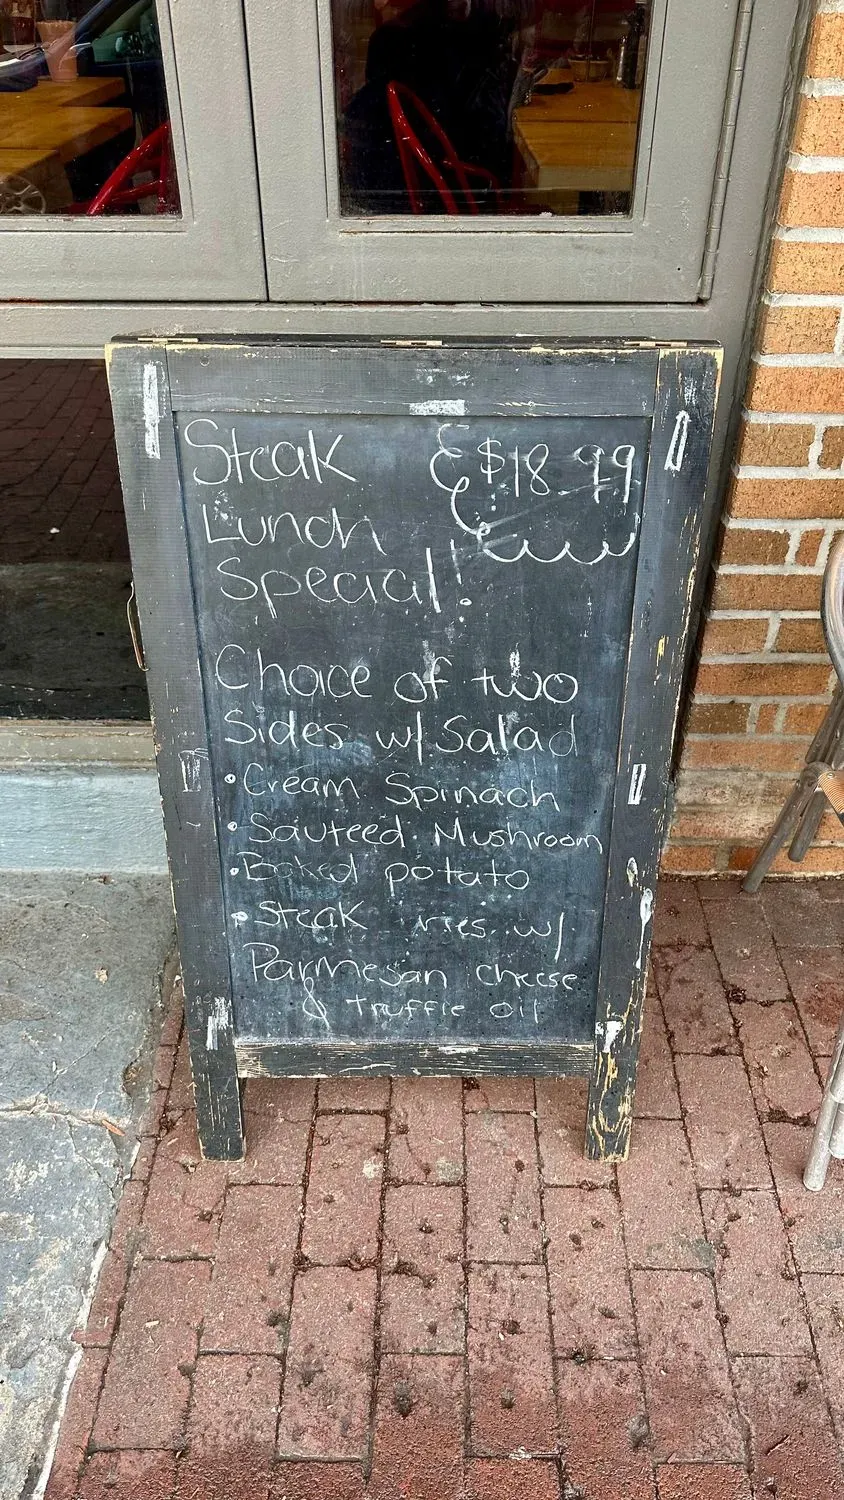 Steak $18.99
Lunch
Special!
Choice of two
Sides w/ Salad
• Cream Spinach
• Sauteed Mushroom
• Baked potato
• Steak fries w/
Parmesan cheese
& truffle oil